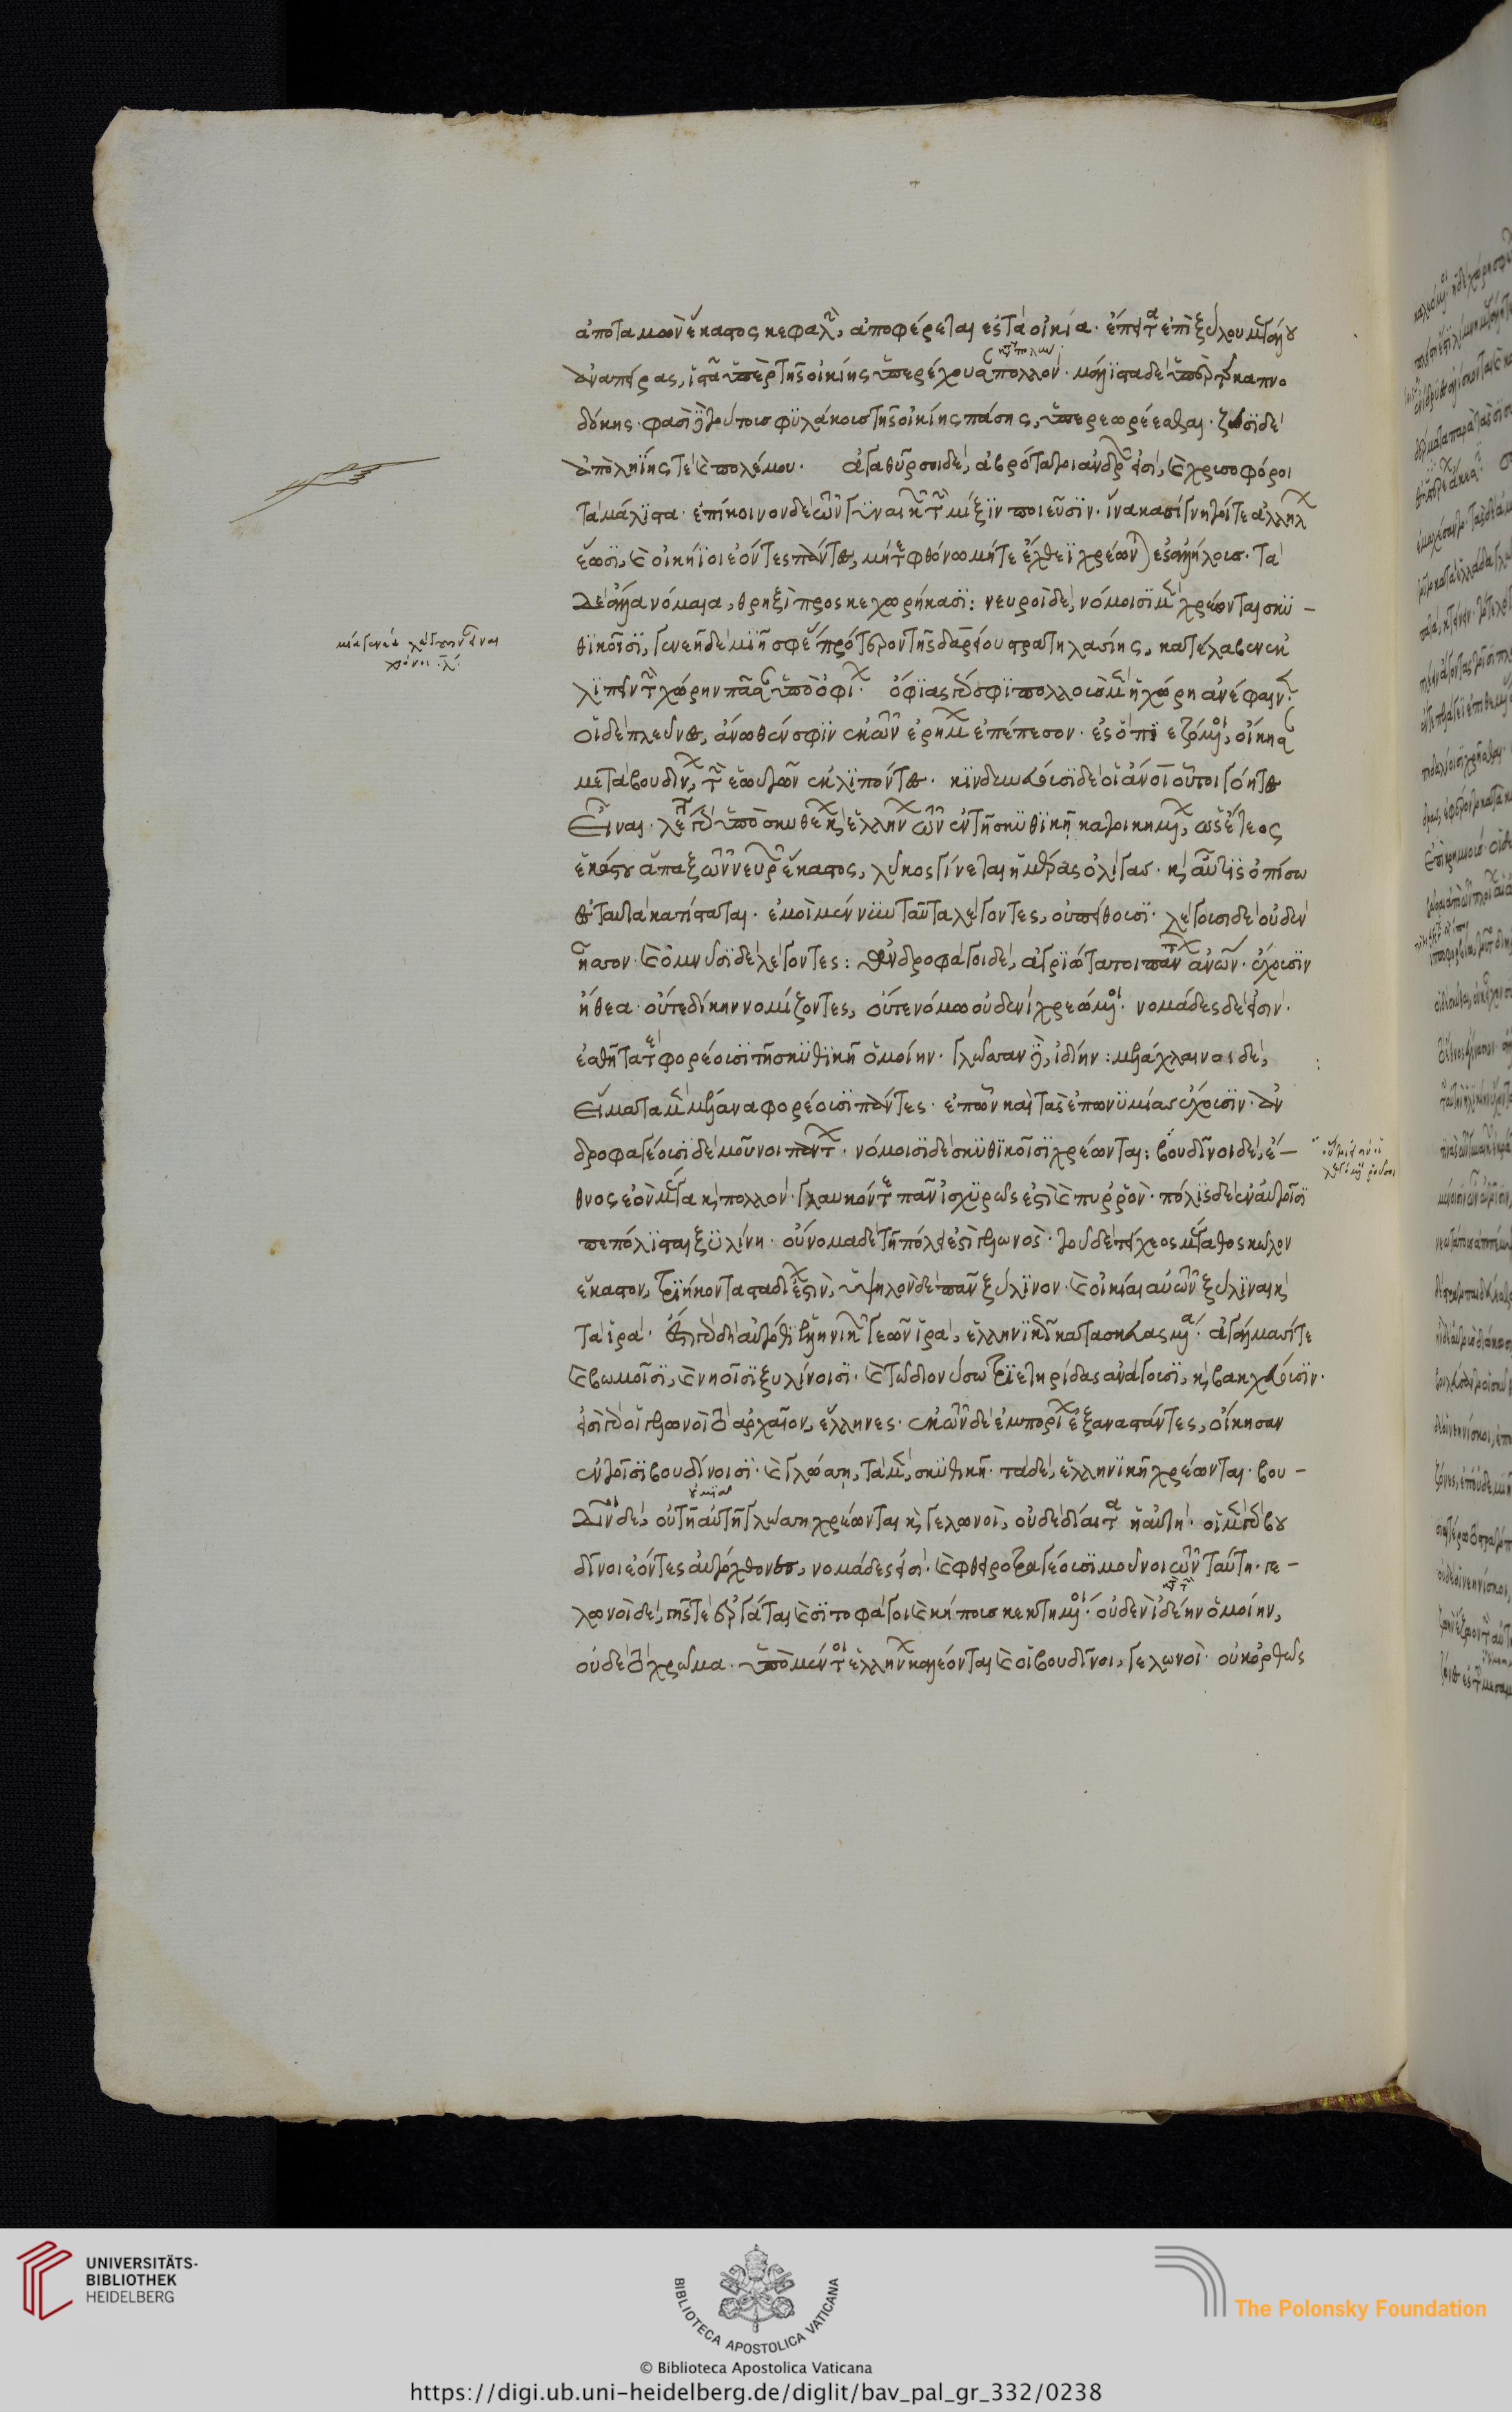 ἀποταμὼν ἕκαστος κεφαλὴν, ἀποφέρεται ἐς τὰ οἰκία. ἔπειτα ἐπὶ ξύλου μεγάλου
ἀναπείρας, ἱστᾷ ὑπὲρ τῆς οἰκίης ὑπερέχουσαν πολλόν. μάλιστα δὲ ὑπὲρ τῆς καπνο
δόκης. φασὶ δὲ τούτους φυλάκους τῆς οἰκίης πάσης, ὑπεραιωρέεσθαι. ζῶσι δὲ
ἀπὸ ληΐης τε καὶ πολέμου. ἀγάθυρσοι δὲ, ἁβρότατοι ἄνδρες εἰσὶ, καὶ χρυσοφόροι
τὰ μάλιστα. ἐπίκοινον δὲ τῶν γυναικῶν τὴν μίξιν ποιεῦσιν. ἵνα κασίγνητοί τε ἀλλήλων
ἔωσι, καὶ οἰκήϊοι ἐόντες πάντες, μήτε φθόνω μήτε ἔχθεϊ χρέωνται ἐς ἀλλήλους. τὰ
δὲ ἄλλα νόμαια, θρηιξὶ προσκεχωρήκασι: νευροὶ δὲ, νόμοισι μὲν χρέονται σκυ-
θικοῖσι, γενεῇ δὲ μιῇ σφέας πρότερον τῆς δαρείου στρατηλασίης, κατέλαβεν ἐκ
λιπεῖν τὴν χώρην πᾶσαν ὑπὸ ὀφίων. ὄφιας γάρ σφι πολλοὺς μὲν ἡ χώρη ἀνέφαινε.
οἱ δὲ πλεῦνες, ἄνωθέν σφιν ἐκ τῶν ἐρήμων ἐπέπεσον. ἐς ὃ πιεζόμενοι, οἴκησαν
μετὰ βουδίνων, τὴν ἑωυτῶν ἐκλιπόντες. κινδυνεύουσι δὲ οἱ ἄνοι οὗτοι γόητες
εἶναι. λέγονται γὰρ ὑπὸ σκυθέων καὶ ἑλλήνων τῶν ἐν τῇ σκυθικῇ κατοικημένων, ὡς ἔτεος
ἑκάστου ἅπαξ τῶν νευρῶν ἕκαστος, λύκος γίνεται ἡμέρας ὀλίγας. καὶ αὖτις ὀπίσω
ἐς τωυτὸ κατίσταται. ἐμὲ μέν νυν ταῦτα λέγοντες, οὐ πείθουσι. λέγουσι δὲ οὐδὲν
ἧσσον. καὶ ὀμνῦσι δὲ λέγοντες: ἀνδροφάγοι δὲ, ἀγριώτατοι πάντων ἀνων. ἔχουσιν
ἤθεα. οὔτε δίκην νομίζοντες, οὔτε νόμω οὐδενὶ χρεώμενοι. νομάδες δέ εἰσιν.
ἐσθῆτά τε φορέουσι τῇ σκυθικῇ ὁμοίην. γλῶσσαν δὲ, ἰδίην: μελάγχλαινοι δὲ,
εἵματα μὲν μέλανα φορέουσι πάντες. ἐπ' ὧν καὶ τὰς ἐπωνυμίας ἔχουσιν. ἀν
δροφαγέουσι δὲ μοῦνοι τούτων. νόμοισι δὲ σκυθικοῖσι χρέωνται: βουδῖνοι δὲ, ἔ-
θνος ἐὸν μέγα καὶ πολλόν. γλαυκόν τε πᾶν ἰσχυρῶς ἐστὶ καὶ πυρρόν. πόλις δὲ ἐν αὐτοῖσι
πεπόλισται ξυλίνη. οὔνομα δὲ τῇ πόλει ἐστὶ γελωνός. τοῦ δὲ τείχεος μέγαθος κῶλον
ἕκαστον, τριήκοντα σταδίων ἐστὶν, ὑψηλὸν δὲ πᾶν ξύλινον. καὶ οἰκίαι αὐτῶν ξύλιναι καὶ
τὰ ἱρά. ἔστι γὰρ δὴ αὐτόθι ἑλληνικῶν θεῶν ἱρὰ, ἑλληνικῶς κατασκευασμένα. ἀγάλμασί τε
καὶ βωμοῖσι, καὶ νηοῖσι ξυλίνοισι. καὶ τῶ διονύσω τριετηρίδας ἀνάγουσι, καὶ βακχεύουσιν.
εἰσὶ γὰρ οἱ γελωνοὶ τὸ ἀρχαῖον, ἕλληνες. ἐκ τῶν δὲ ἐμπορίων ἐξαναστάντες, οἴκησαν
ἐν τοῖσι βουδίνοισι. καὶ γλώσση, τὰ μὲν, σκυθικῇ. τὰ δὲ, ἑλληνικῇ χρέωνται. βου-
δῖνοι δὲ, οὐ τῇ αὐτῇ γλώσση χρέωνται καὶ γελωνοὶ, οὐδὲ δίαιτα ἡ αὐτή. οἱ μὲν γὰρ βου
δῖνοι ἐόντες αὐτόχθονες, νομάδες εἰσί. καὶ φθειροτραγέουσι μοῦνοι τῶν ταύτη. γε-
λωνοὶ δὲ, γῆς τε ἐργάται καὶ σιτοφάγοι καὶ κήπους κεκτημένοι. οὐδὲν ἰδέην ὁμοίην,
οὐδὲ τὸ χρῶμα. ὑπὸ μέντοι ἑλλήνων καλέονται καὶ οἱ βουδῖνοι, γελωνοί. οὐκ ὀρθῶς
UNIVERSITÄTS-
BIBLIOTHEK
HEIDELBERG
BIBLIOTECA APOSTOLICA VATICANA
© Biblioteca Apostolica Vaticana
The Polonsky Foundation
https://digi.ub.uni-heidelberg.de/diglit/bav_pal_gr_332/0238